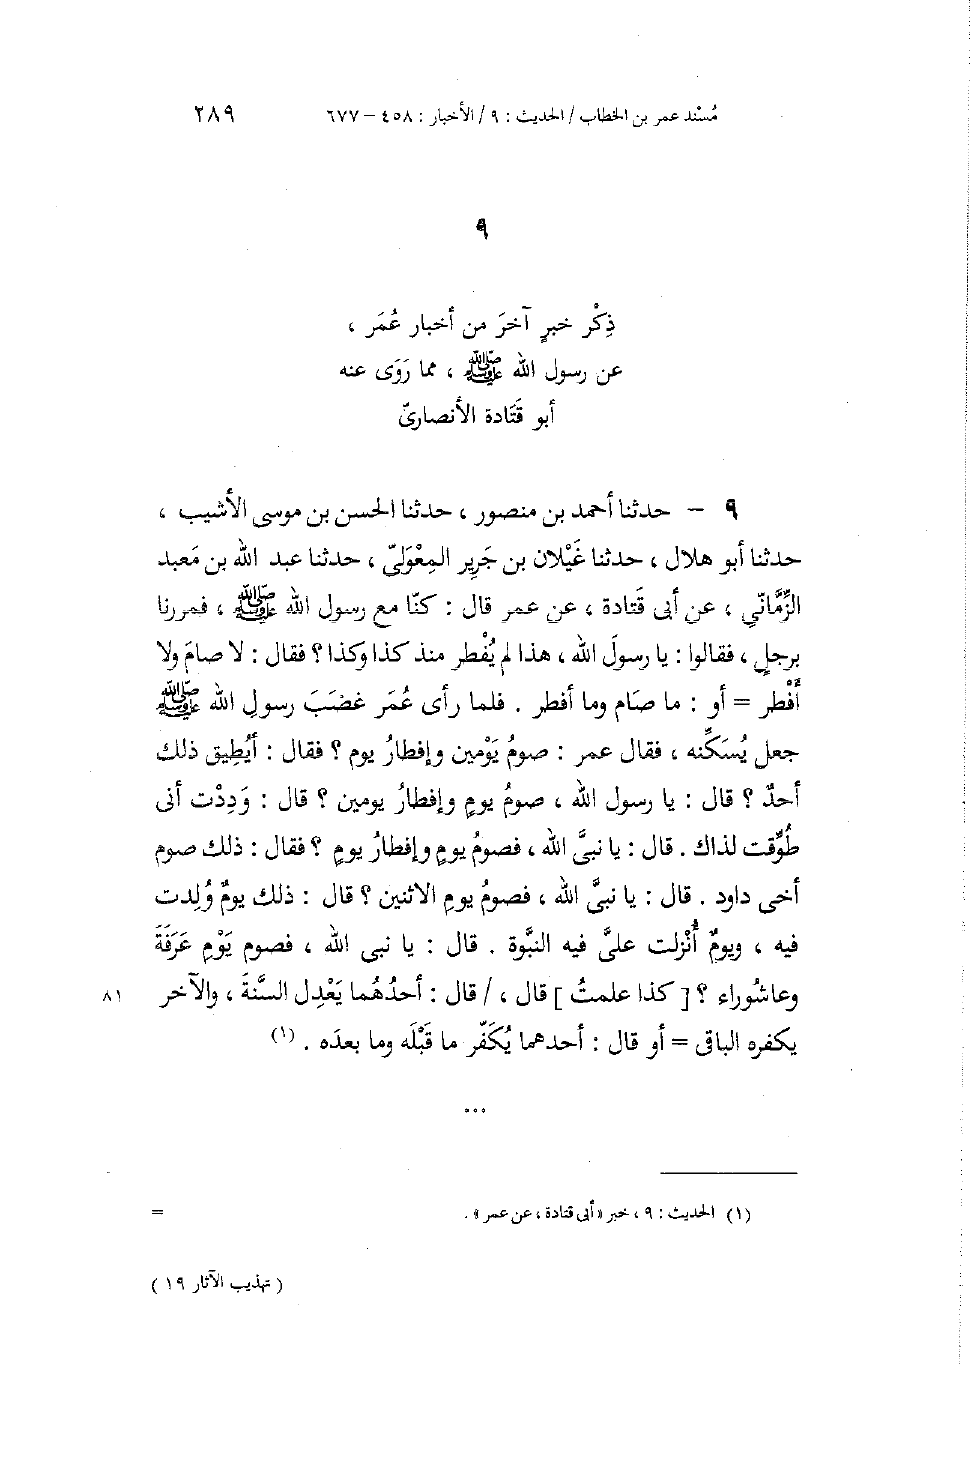 مُسْند عمر بن الخطاب / الحديث : ٩ / الأخبار : ٤٥٨ – ٦٧٧ ٢٨٩
٩
ذِكْر خبرٍ آخرَ من أخبار عُمَر ،
عن رسول الله ﷺ ، مما رَوَى عنه
أبو قَتَادة الأنصارىّ
٩ – حدثنا أحمد بن منصور ، حدثنا الحسن بن موسى الأشيب ،
حدثنا أبو هلال ، حدثنا غَيْلان بن جَرِير المِعْوَلىّ ، حدثنا عبد الله بن مَعبد
الزِّمَّانّي ، عن أبى قَتادة ، عن عمر قال : كنّا مع رسول الله ﷺ ، فمررنا
برجلٍ ، فقالوا : يا رسولَ الله ، هذا لم يُفْطر منذ كذا وكذا ؟ فقال : لا صامَ ولا
أَفْطر = أو : ما صَام وما أفطر . فلما رأى عُمَر غضَبَ رسولِ الله ﷺ
جعل يُسَكِّنه ، فقال عمر : صومُ يَوْمين وإفطارُ يوم ؟ فقال : أيُطِيق ذلك
أحدٌ ؟ قال : يا رسول الله ، صومُ يومٍ وإفطارُ يومين ؟ قال : وَدِدْت أنى
طُوِّقت لذاك . قال : يا نبىَّ الله ، فصومُ يومٍ وإفطارُ يومٍ ؟ فقال : ذلك صوم
أخى داود . قال : يا نبىَّ الله ، فصومُ يومِ الاثنين ؟ قال : ذلك يومٌ وُلِدت
فيه ، ويومٌ أُنْزلت علىَّ فيه النبَّوة . قال : يا نبى الله ، فصوم يَوْمِ عَرَفَةَ
وعاشُوراء ؟ [ كذا علمتُ ] قال ، / قال : أحدُهُما يَعْدِل السَّنةَ ، والآخر ٨١
يكفره الباقى = أو قال : أحدهما يُكَفِّر ما قَبْلَه وما بعدَه . (١)
...
(١) الحديث : ٩ ، خبر « أبى قتادة ، عن عمر » . =
( تهذيب الآثار ١٩ )